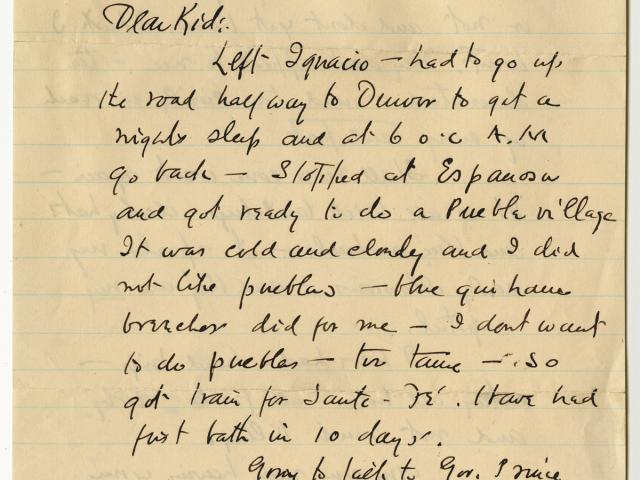 Dear Kid:
Left Ignacio – had to go up
the road half way to Denver to get a
nights sleep and at 6 o.c A.M
go back – Stopped at Espanosa
and got ready to do a Pueblo village
It was cold and cloudy and I did
not like pueblos – blue gui
breeches did for me – I dont want
to do pueblos – too tame – so
got train for Santa-Fé. Have had
first bath in 10 days.
Going to talk to Gov. Prince